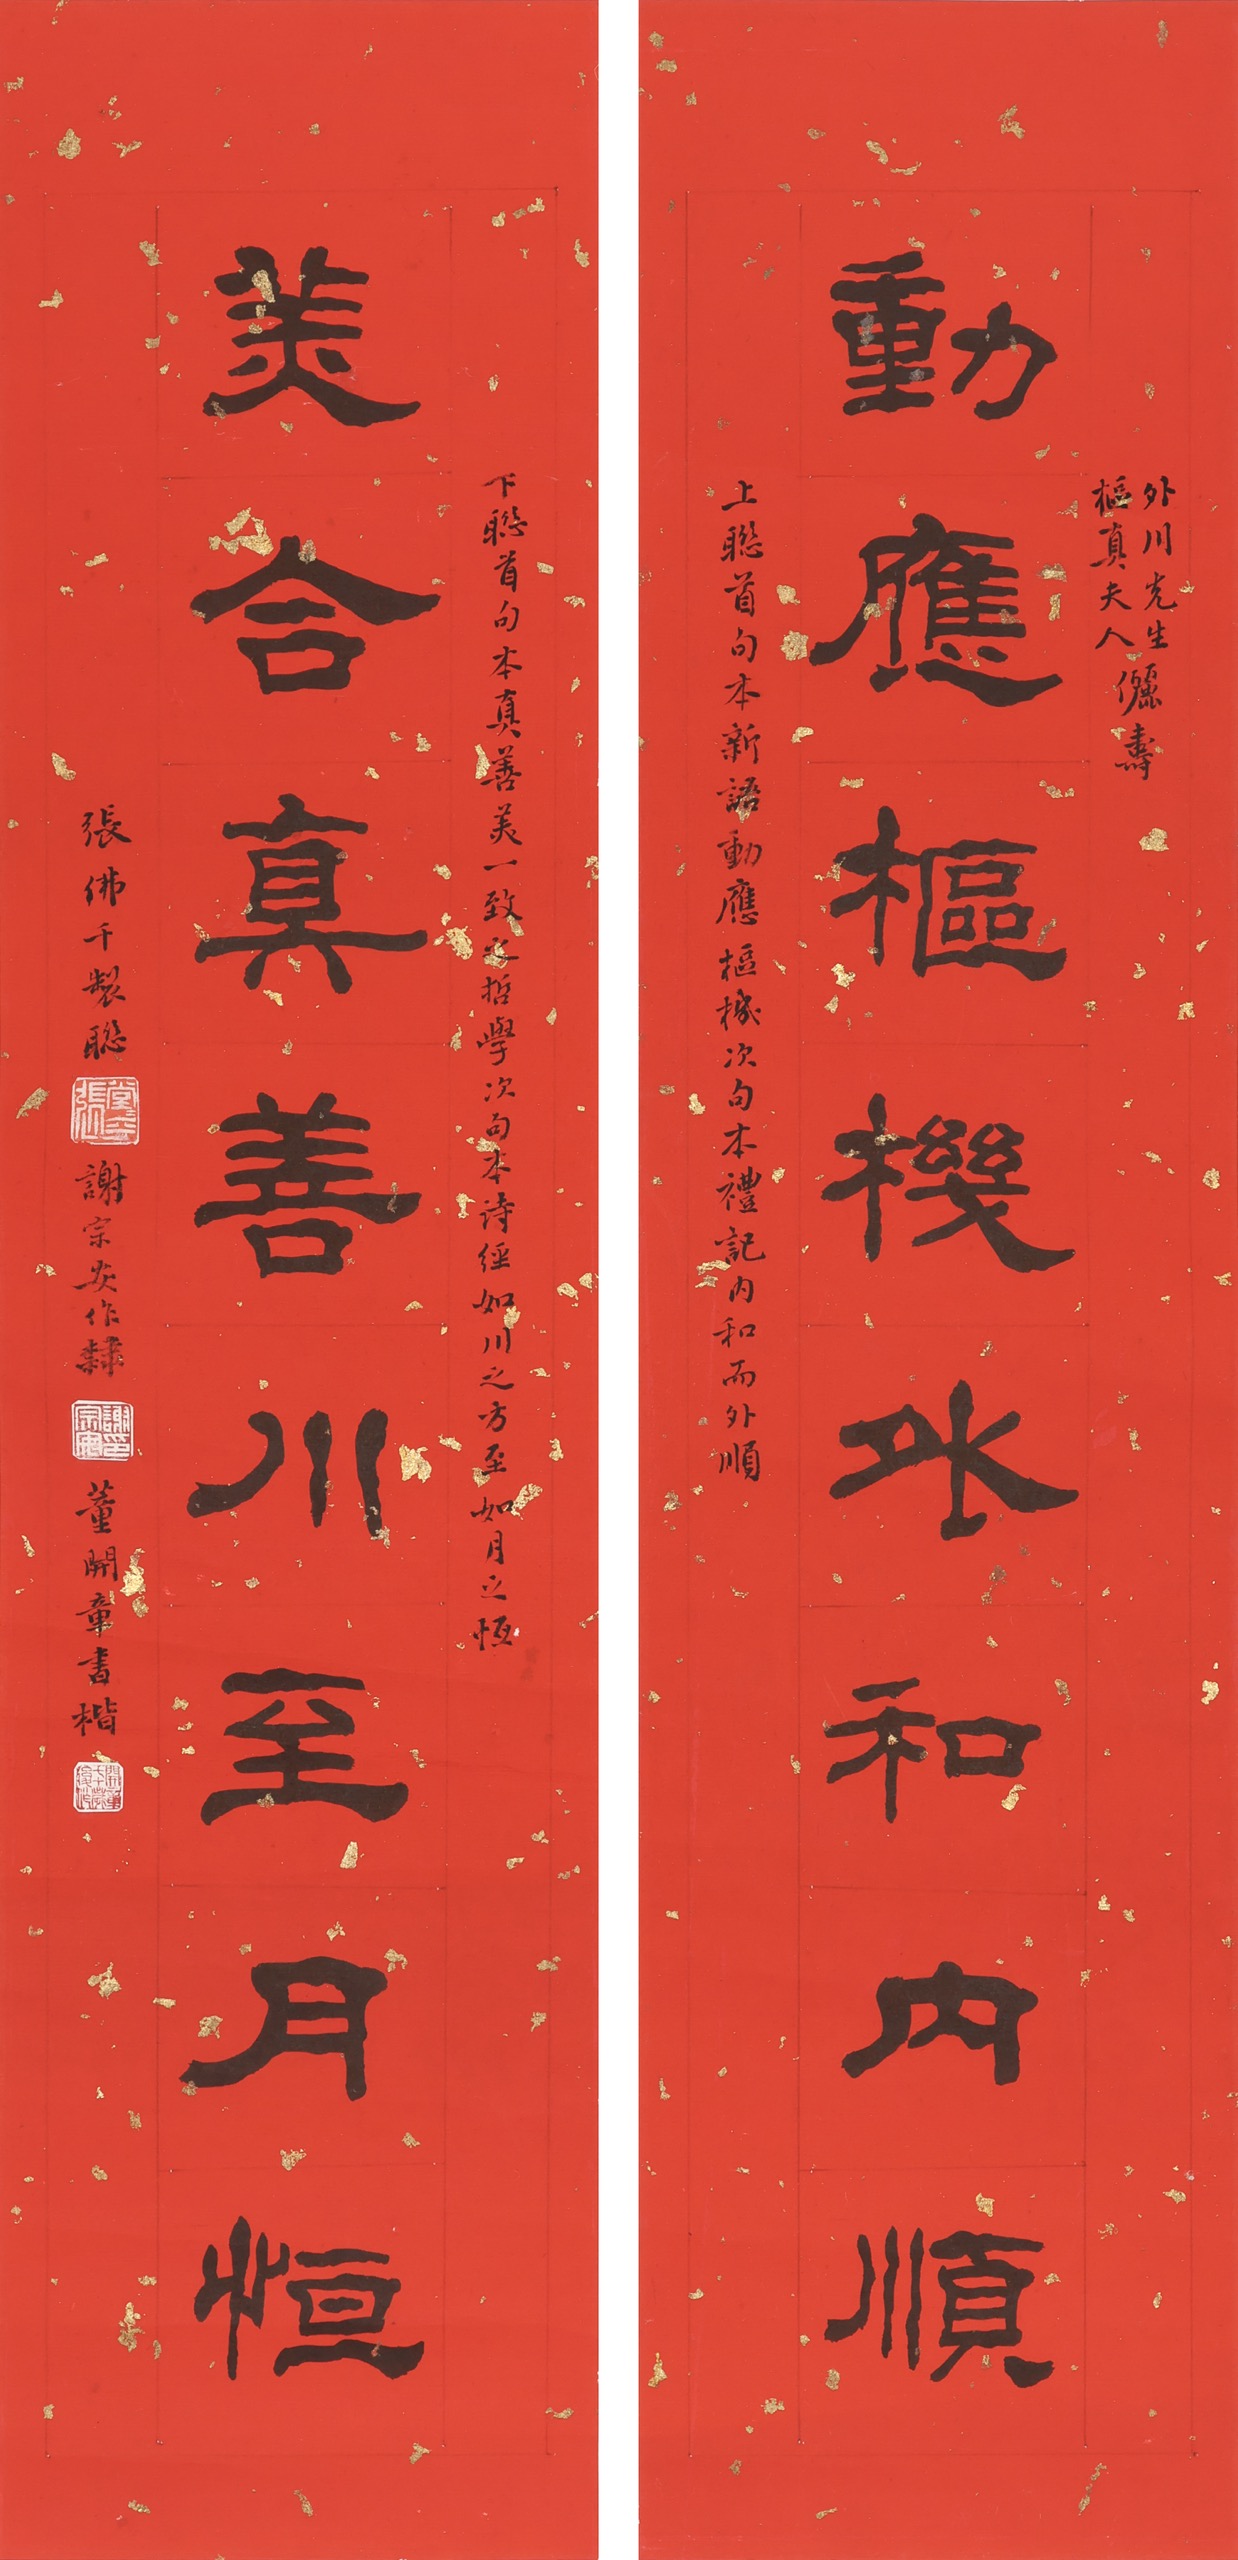 外川先生
樞真夫人
儷壽
動應樞機外和內順
上聯首句本新語動應樞機次句本禮記內和而外順
下聯首句本真善美一致之哲學次句本诗經如川之方至如月之恆
美合真善川至月恒
張佛千製聯
謝宗安作隸
謝宗安印
董開章書楷